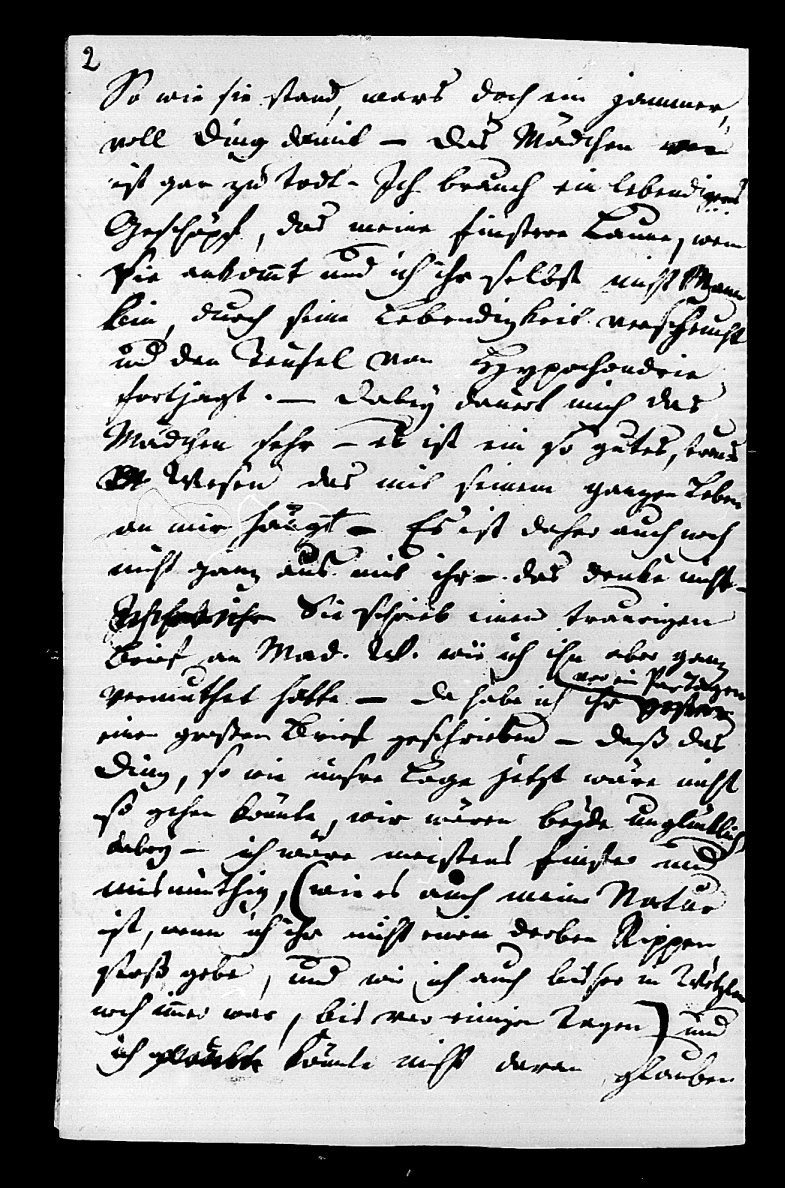 2
So wie sie stand, wars doch ein jammer,
voll Ding damit – Das Mädchen
ist gar zu todt – Ich brauch ein lebendiges
Geschöpf, das meine finstere Laune, wenn
Sie ankommt und ich ihr selbst nicht Mann
bin, durch seine Lebendigkeit verscheucht
und den Teufel von Hypochondrie
fortjagt. – Dabey dauert mich das
Mädchen sehr – es ist ein so gutes, treu
Wesen das mit seinem ganzen Leben
an mir hängt – Es ist daher auch noch
nicht ganz aus mit ihr – das denke nicht –
Sie schrieb einen traurigen
Brief an Mad. W. wie ich ihn aber ganz
vor ein Paar Tagen
vermuthet hatte – Da habe ich ihr
einen großen Brief geschrieben – daß das
Ding, so wie unsre Lage jetzt wäre nicht
so gehen könnte, wir wären beyde unglücklich
dabey – ich wäre meistens finster und
mismüthig, (wie es auch meine Natur
ist, wenn ich ihr nicht einen derben Rippen
stoß gebe, und wie ich auch bisher in Wetzlar
noch imer war, bis vor einigen Tagen) und
ich könnte nicht daran glauben